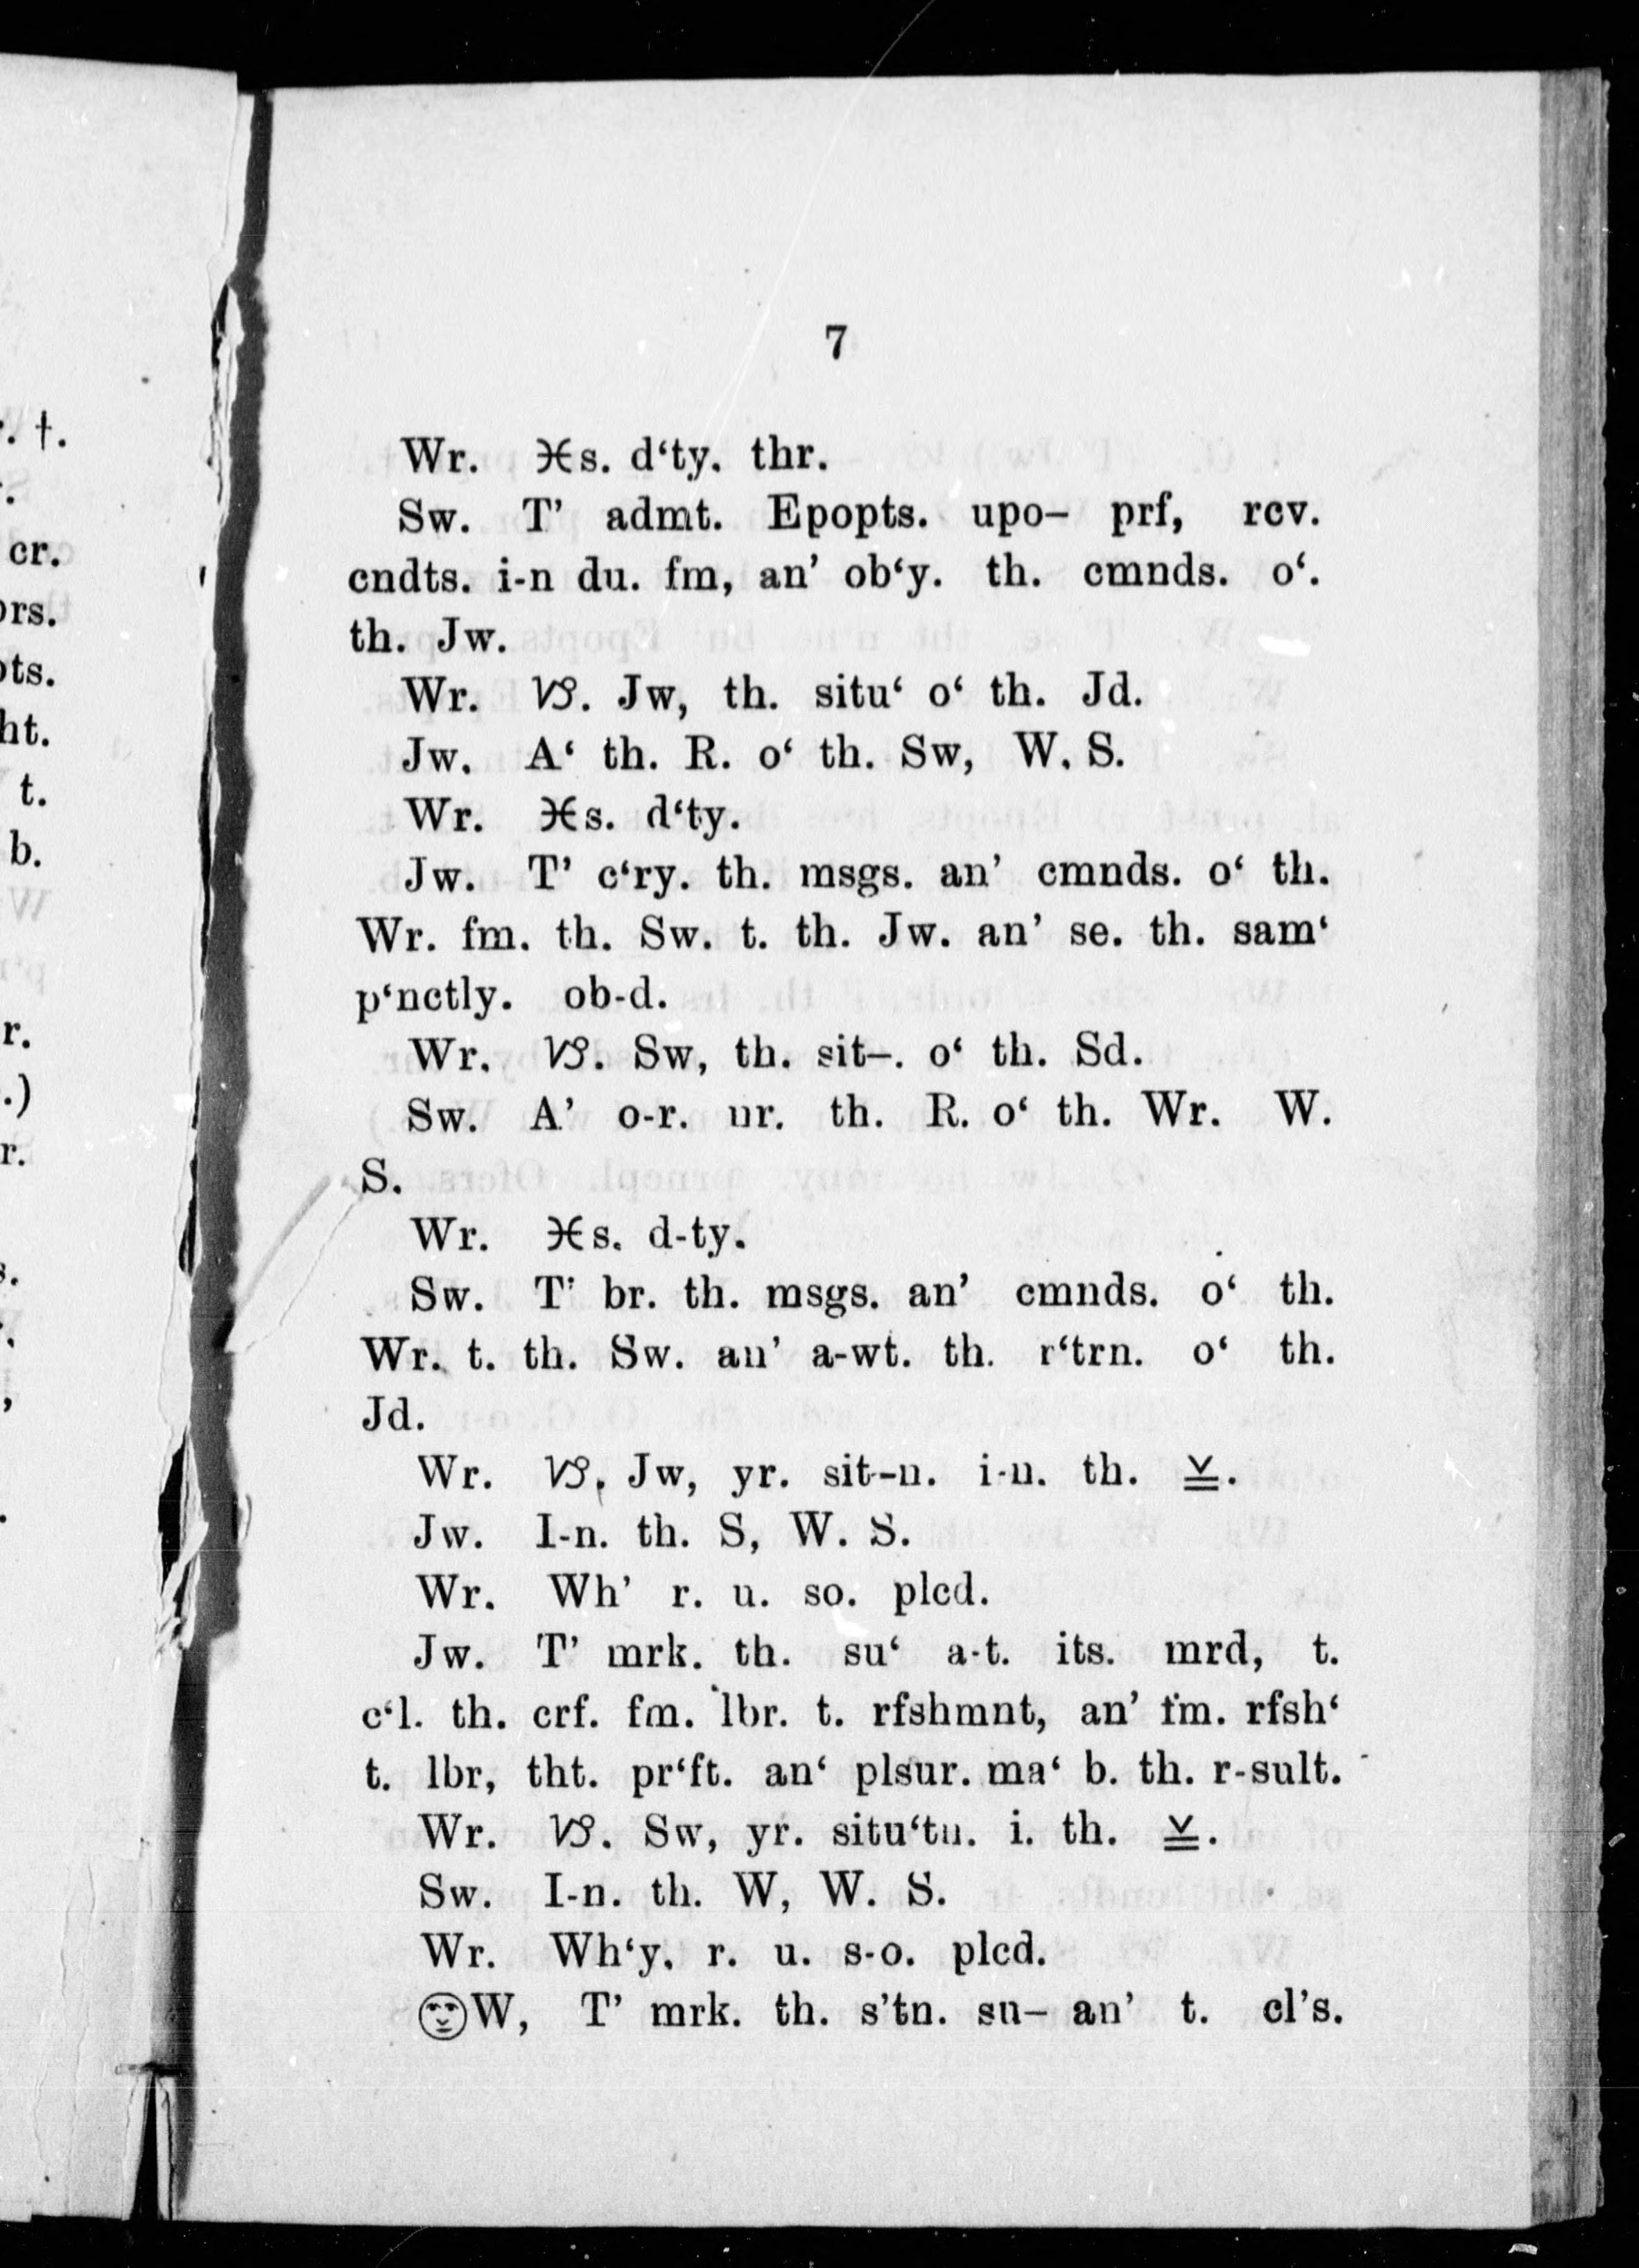 7
. †.
Wr. ♓s. d‘ty. thr.
Sw. T’ admt. Epopts. upo– prf, rcv.
cr.
cndts. i-n du. fm, an’ ob‘y. th. cmnds. o‘.
th. Jw.
Wr. ♑. Jw, th. situ‘ o‘ th. Jd.
Jw. A‘ th. R. o‘ th. Sw, W. S.
t.
Wr. ♓s. d‘ty.
b.
Jw. T’ c‘ry. th. msgs. an’ cmnds. o‘ th.
Wr. fm. th. Sw. t. th. Jw. an’ se. th. sam‘
p‘nctly. ob-d.
r.
Wr. ♑. Sw, th. sit–. o‘ th. Sd.
.)
Sw. A’ o-r. nr. th. R. o‘ th. Wr. W.
r.
S.
Wr. ♓s. d-ty.
Sw. T’ br. th. msgs. an’ cmnds. o‘ th.
Wr. t. th. Sw. an’ a-wt. th. r‘trn. o‘ th.
Jd.
Wr. ♑, Jw, yr. sit--n. i-n. th. ⚺.
Jw. I-n. th. S, W. S.
Wr. Wh’ r. u. so. plcd.
Jw. T’ mrk. th. su‘ a-t. its. mrd, t.
c‘l. th. crf. fm. lbr. t. rfshmnt, an’ fm. rfsh‘
t. lbr, tht. pr‘ft. an‘ plsur. ma‘ b. th. r-sult.
Wr. ♑. Sw, yr. situ‘tn. i. th. ⚺.
Sw. I-n. th. W, W. S.
Wr. Wh‘y. r. u. s-o. plcd.
☺W, T’ mrk. th. s’tn. su– an’ t. cl’s.